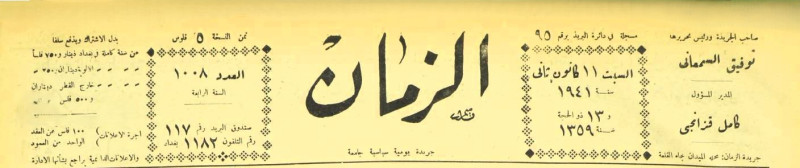 صاحب الجريدة ورئيس تحريرها
توفيق السمعاني
المدير المسؤول
كامل قزانجي
جريدة الزمان: محلها الميدان تجاه القلعة
مسجلة في دائرة البريد برقم ٩٥
السبت ١١ كانون ثاني
سنة ١٩٤١
و ١٣ ذو الحجة
سنة ١٣٥٩
الزمان
جريدة يومية سياسية جامعة
ثمن النسخة ٥ فلوس
العدد ١٠٠٨
السنة الرابعة
صندوق البريد رقم ١١٧
رقم التلفون ١١٨٢ بغداد
بدل الاشتراك ويدفع سلفا
عن سنة كاملة في بغداد دينار و ٧٥٠ فلساً
خارج القطر ديناران
و ٥٠٠ فلس
اجرة الاعلانات ١٠٠ فلس عن العقد
الواحد من العمود
والاعلانات الداعمية يراجع بشأنها الادارة